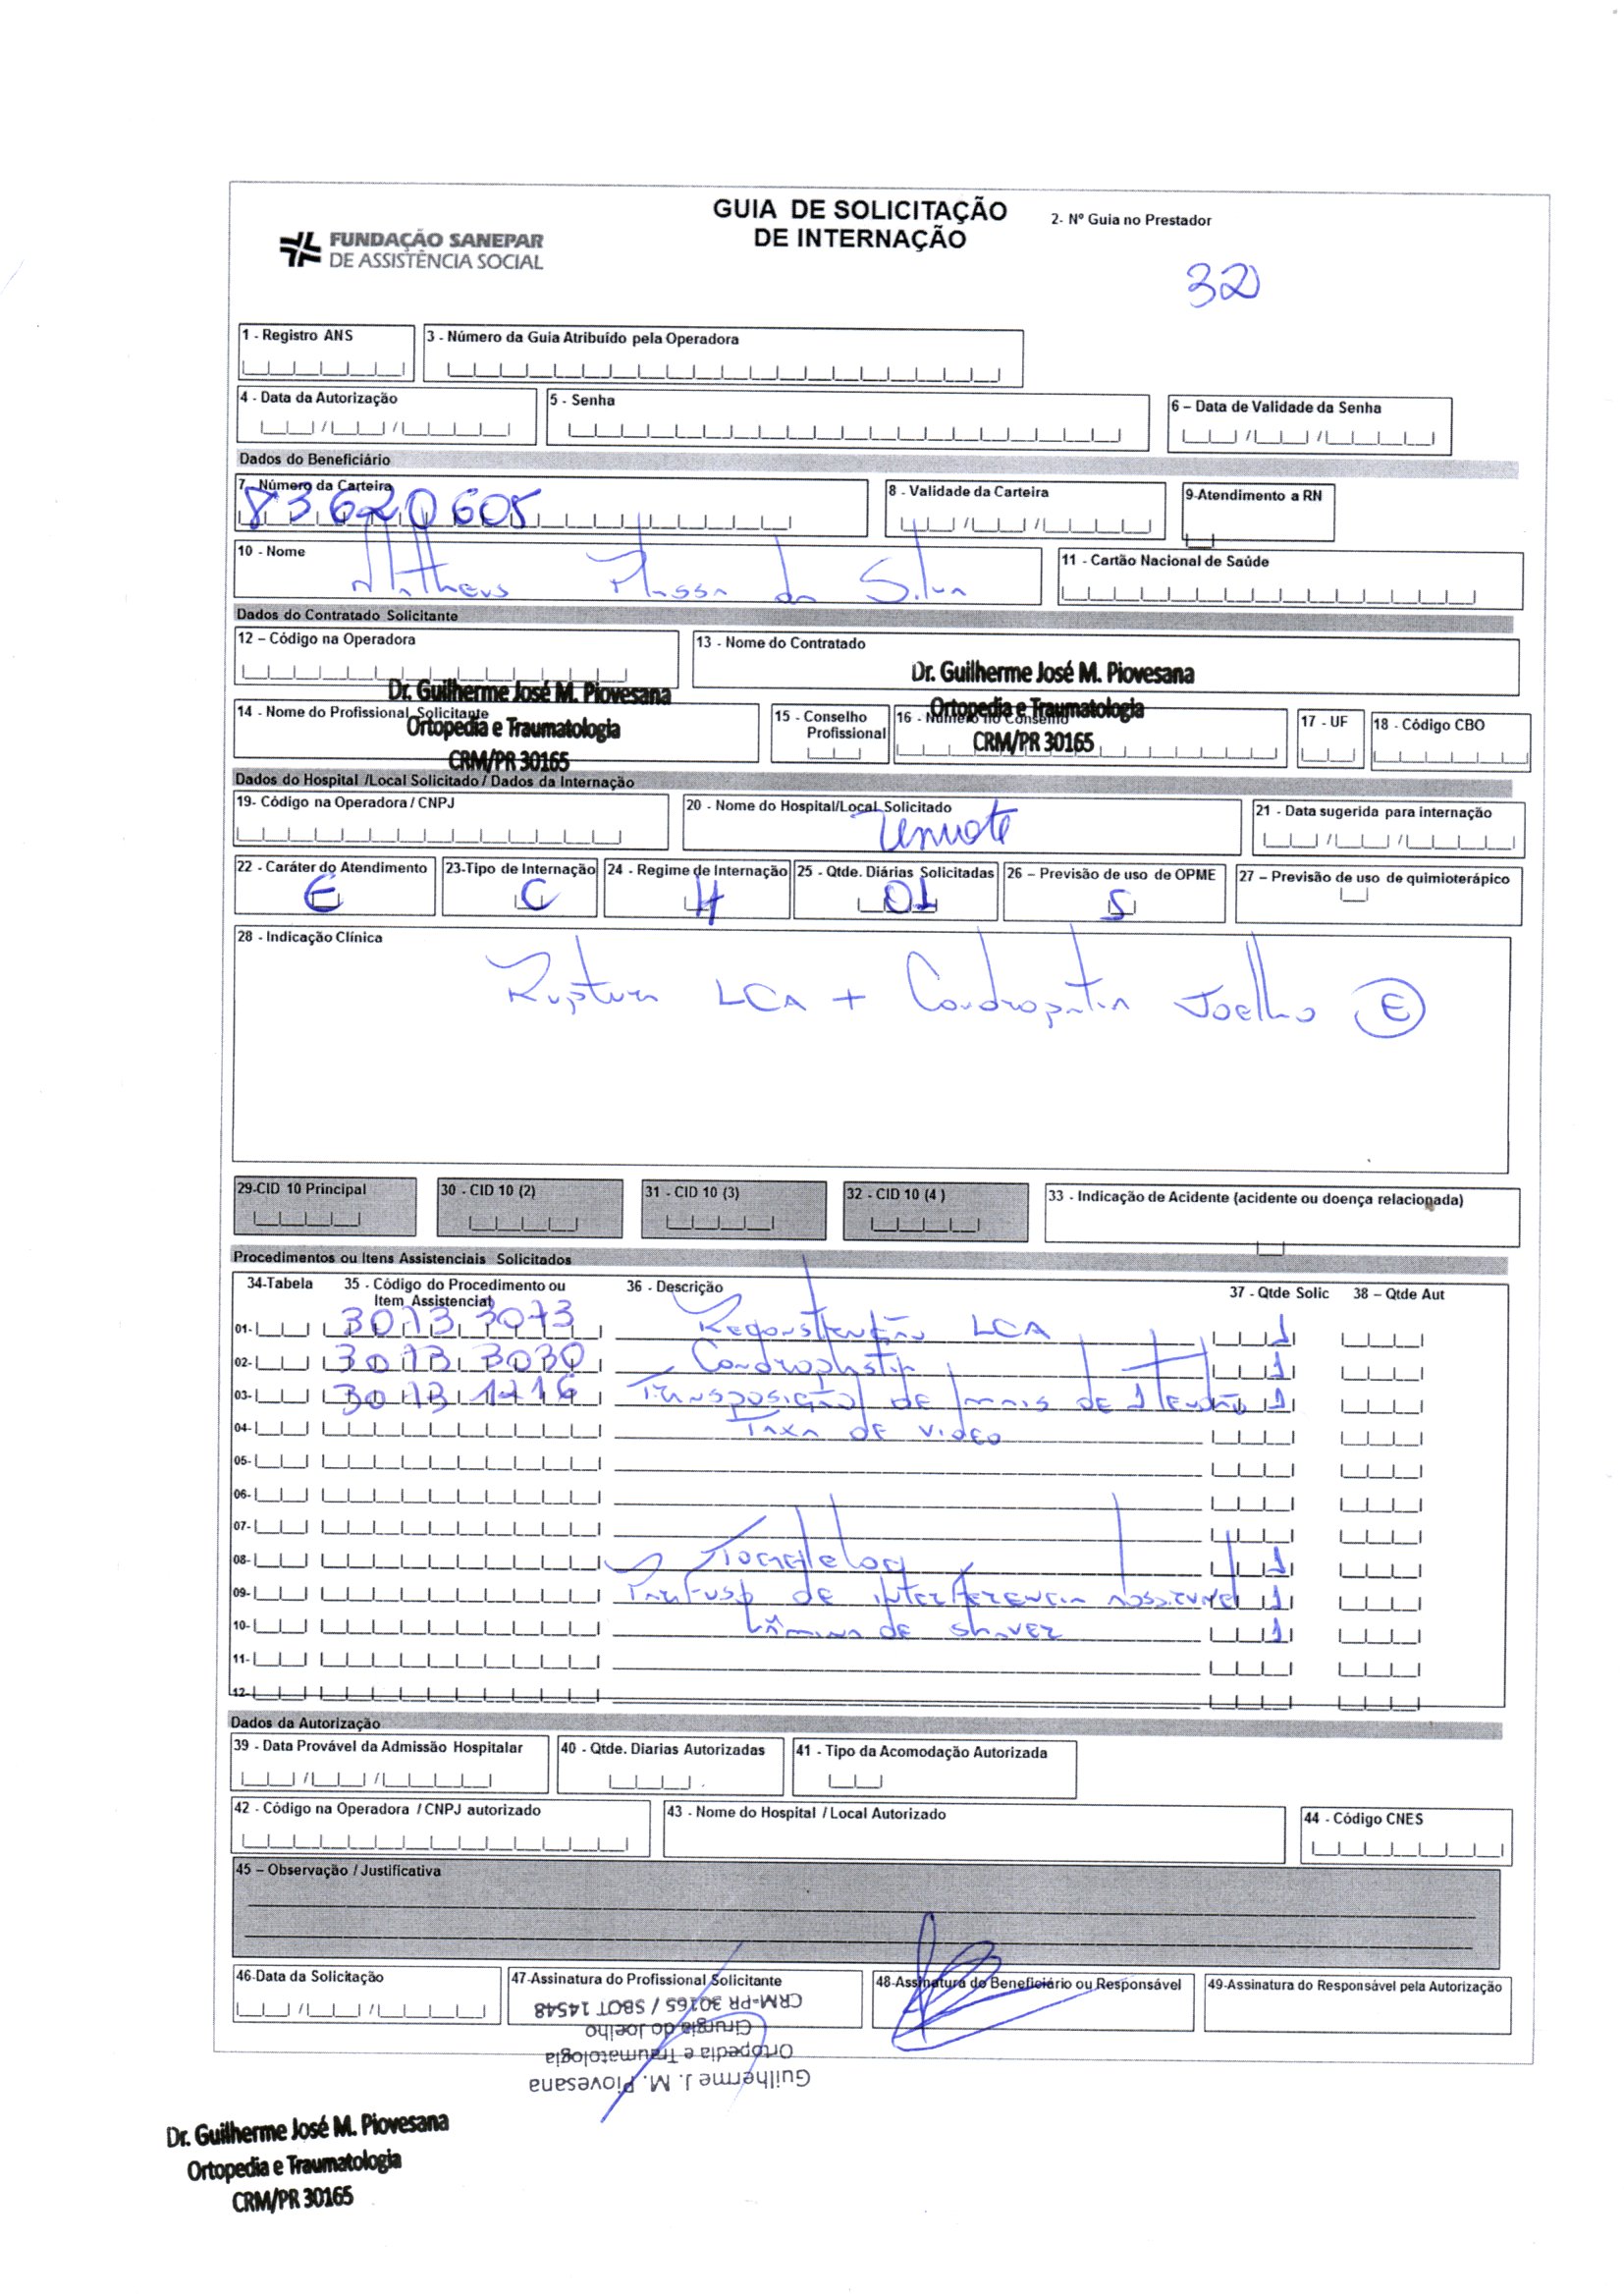 GUIA DE SOLICITAÇÃO
DE INTERNAÇÃO
2- Nº Guia no Prestador
FUNDAÇÃO SANEPAR
DE ASSISTÊNCIA SOCIAL
32
1 - Registro ANS
3 - Número da Guia Atribuído pela Operadora
4 - Data da Autorização
5 - Senha
6 – Data de Validade da Senha
Dados do Beneficiário
7 - Número da Carteira
83620605
8 - Validade da Carteira
9-Atendimento a RN
10 - Nome
Matheus da Silva
11 - Cartão Nacional de Saúde
Dados do Contratado Solicitante
12 – Código na Operadora
13 - Nome do Contratado
Dr. Guilherme José M. Piovesana
Ortopedia e Traumatologia
CRM/PR 30165
Dr. Guilherme José M. Piovesana
Ortopedia e Traumatologia
CRM/PR 30165
14 - Nome do Profissional Solicitante
15 - Conselho Profissional
16 - Número no Conselho
17 - UF
18 - Código CBO
Dados do Hospital /Local Solicitado / Dados da Internação
19- Código na Operadora / CNPJ
20 - Nome do Hospital/Local Solicitado
21 - Data sugerida para internação
22 - Caráter do Atendimento
E
23-Tipo de Internação
C
24 - Regime de Internação
H
25 - Qtde. Diárias Solicitadas
01
26 – Previsão de uso de OPME
S
27 – Previsão de uso de quimioterápico
28 - Indicação Clínica
Ruptura LCA + Condropatia Joelho E
29-CID 10 Principal
30 - CID 10 (2)
31 - CID 10 (3)
32 - CID 10 (4 )
33 - Indicação de Acidente (acidente ou doença relacionada)
Procedimentos ou Itens Assistenciais Solicitados
34-Tabela
35 - Código do Procedimento ou Item Assistencial
36 - Descrição
37 - Qtde Solic
38 – Qtde Aut
01- 30733073 Reconstrução LCA 1
02- 30733030 Condroplastia 1
03- Transposição de mais de 1 tendão 1
04- Taxa de video
05-
06-
07-
08- 1
09- Parafuso de interferencia 1
10- Lâmina de shaver 1
11-
12-
Dados da Autorização
39 - Data Provável da Admissão Hospitalar
40 - Qtde. Diarias Autorizadas
41 - Tipo da Acomodação Autorizada
42 - Código na Operadora / CNPJ autorizado
43 - Nome do Hospital / Local Autorizado
44 - Código CNES
45 – Observação / Justificativa
46-Data da Solicitação
47-Assinatura do Profissional Solicitante
48-Assinatura do Beneficiário ou Responsável
49-Assinatura do Responsável pela Autorização
Guilherme J. M. Piovesana
Ortopedia e Traumatologia
Cirurgia do Joelho
CRM-PR 30165 / SBOT 14548
Dr. Guilherme José M. Piovesana
Ortopedia e Traumatologia
CRM/PR 30165